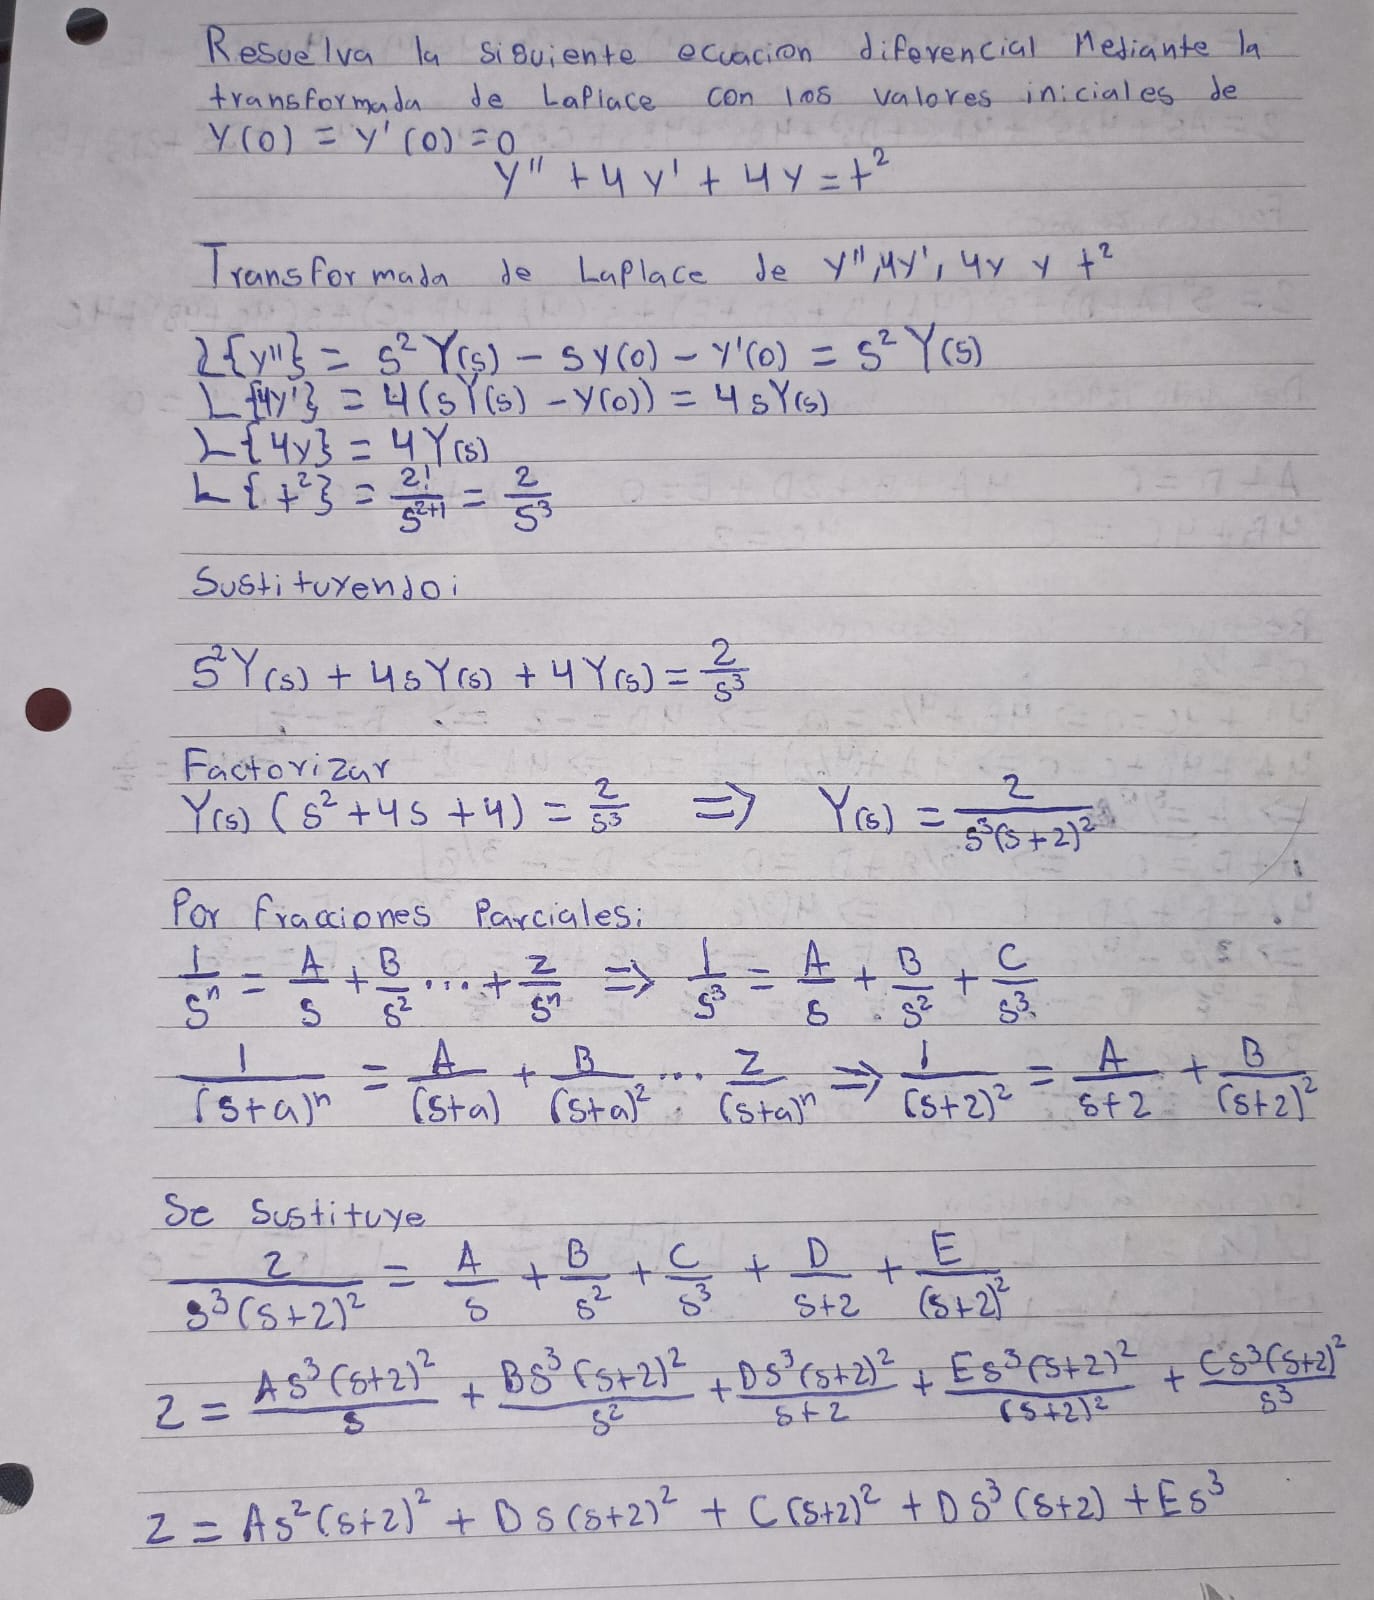 Resuelva la siguiente ecuacion diferencial Mediante la
transformada de Laplace con los valores iniciales de
Y(0) = Y'(0) = 0
Y'' + 4Y' + 4Y = t²
Transformada de Laplace de Y'', 4Y', 4Y y t²
L{Y''} = S²Y(s) - SY(0) - Y'(0) = S²Y(s)
L{4Y'} = 4(sY(s) - Y(0)) = 4sY(s)
L{4Y} = 4Y(s)
L{t²} = 2!/S²⁺¹ = 2/S³
Sustituyendo:
S²Y(s) + 4sY(s) + 4Y(s) = 2/s³
Factorizar
Y(s) (s² + 4s + 4) = 2/s³ => Y(s) = 2/s³(s+2)²
Por fracciones Parciales:
1/Sⁿ = A/S + B/s² ... + Z/sⁿ => 1/s³ = A/s + B/s² + C/s³
1/(s+a)ⁿ = A/(s+a) + B/(s+a)² ... Z/(s+a)ⁿ => 1/(s+2)² = A/s+2 + B/(s+2)²
Se Sustituye
2/s³(s+2)² = A/s + B/s² + C/s³ + D/s+2 + E/(s+2)²
2 = As³(s+2)²/s + Bs³(s+2)²/s² + Ds³(s+2)²/s+2 + Es³(s+2)²/(s+2)² + Cs³(s+2)²/s³
2 = As²(s+2)² + Ds(s+2)² + C(s+2)² + Ds³(s+2) + Es³